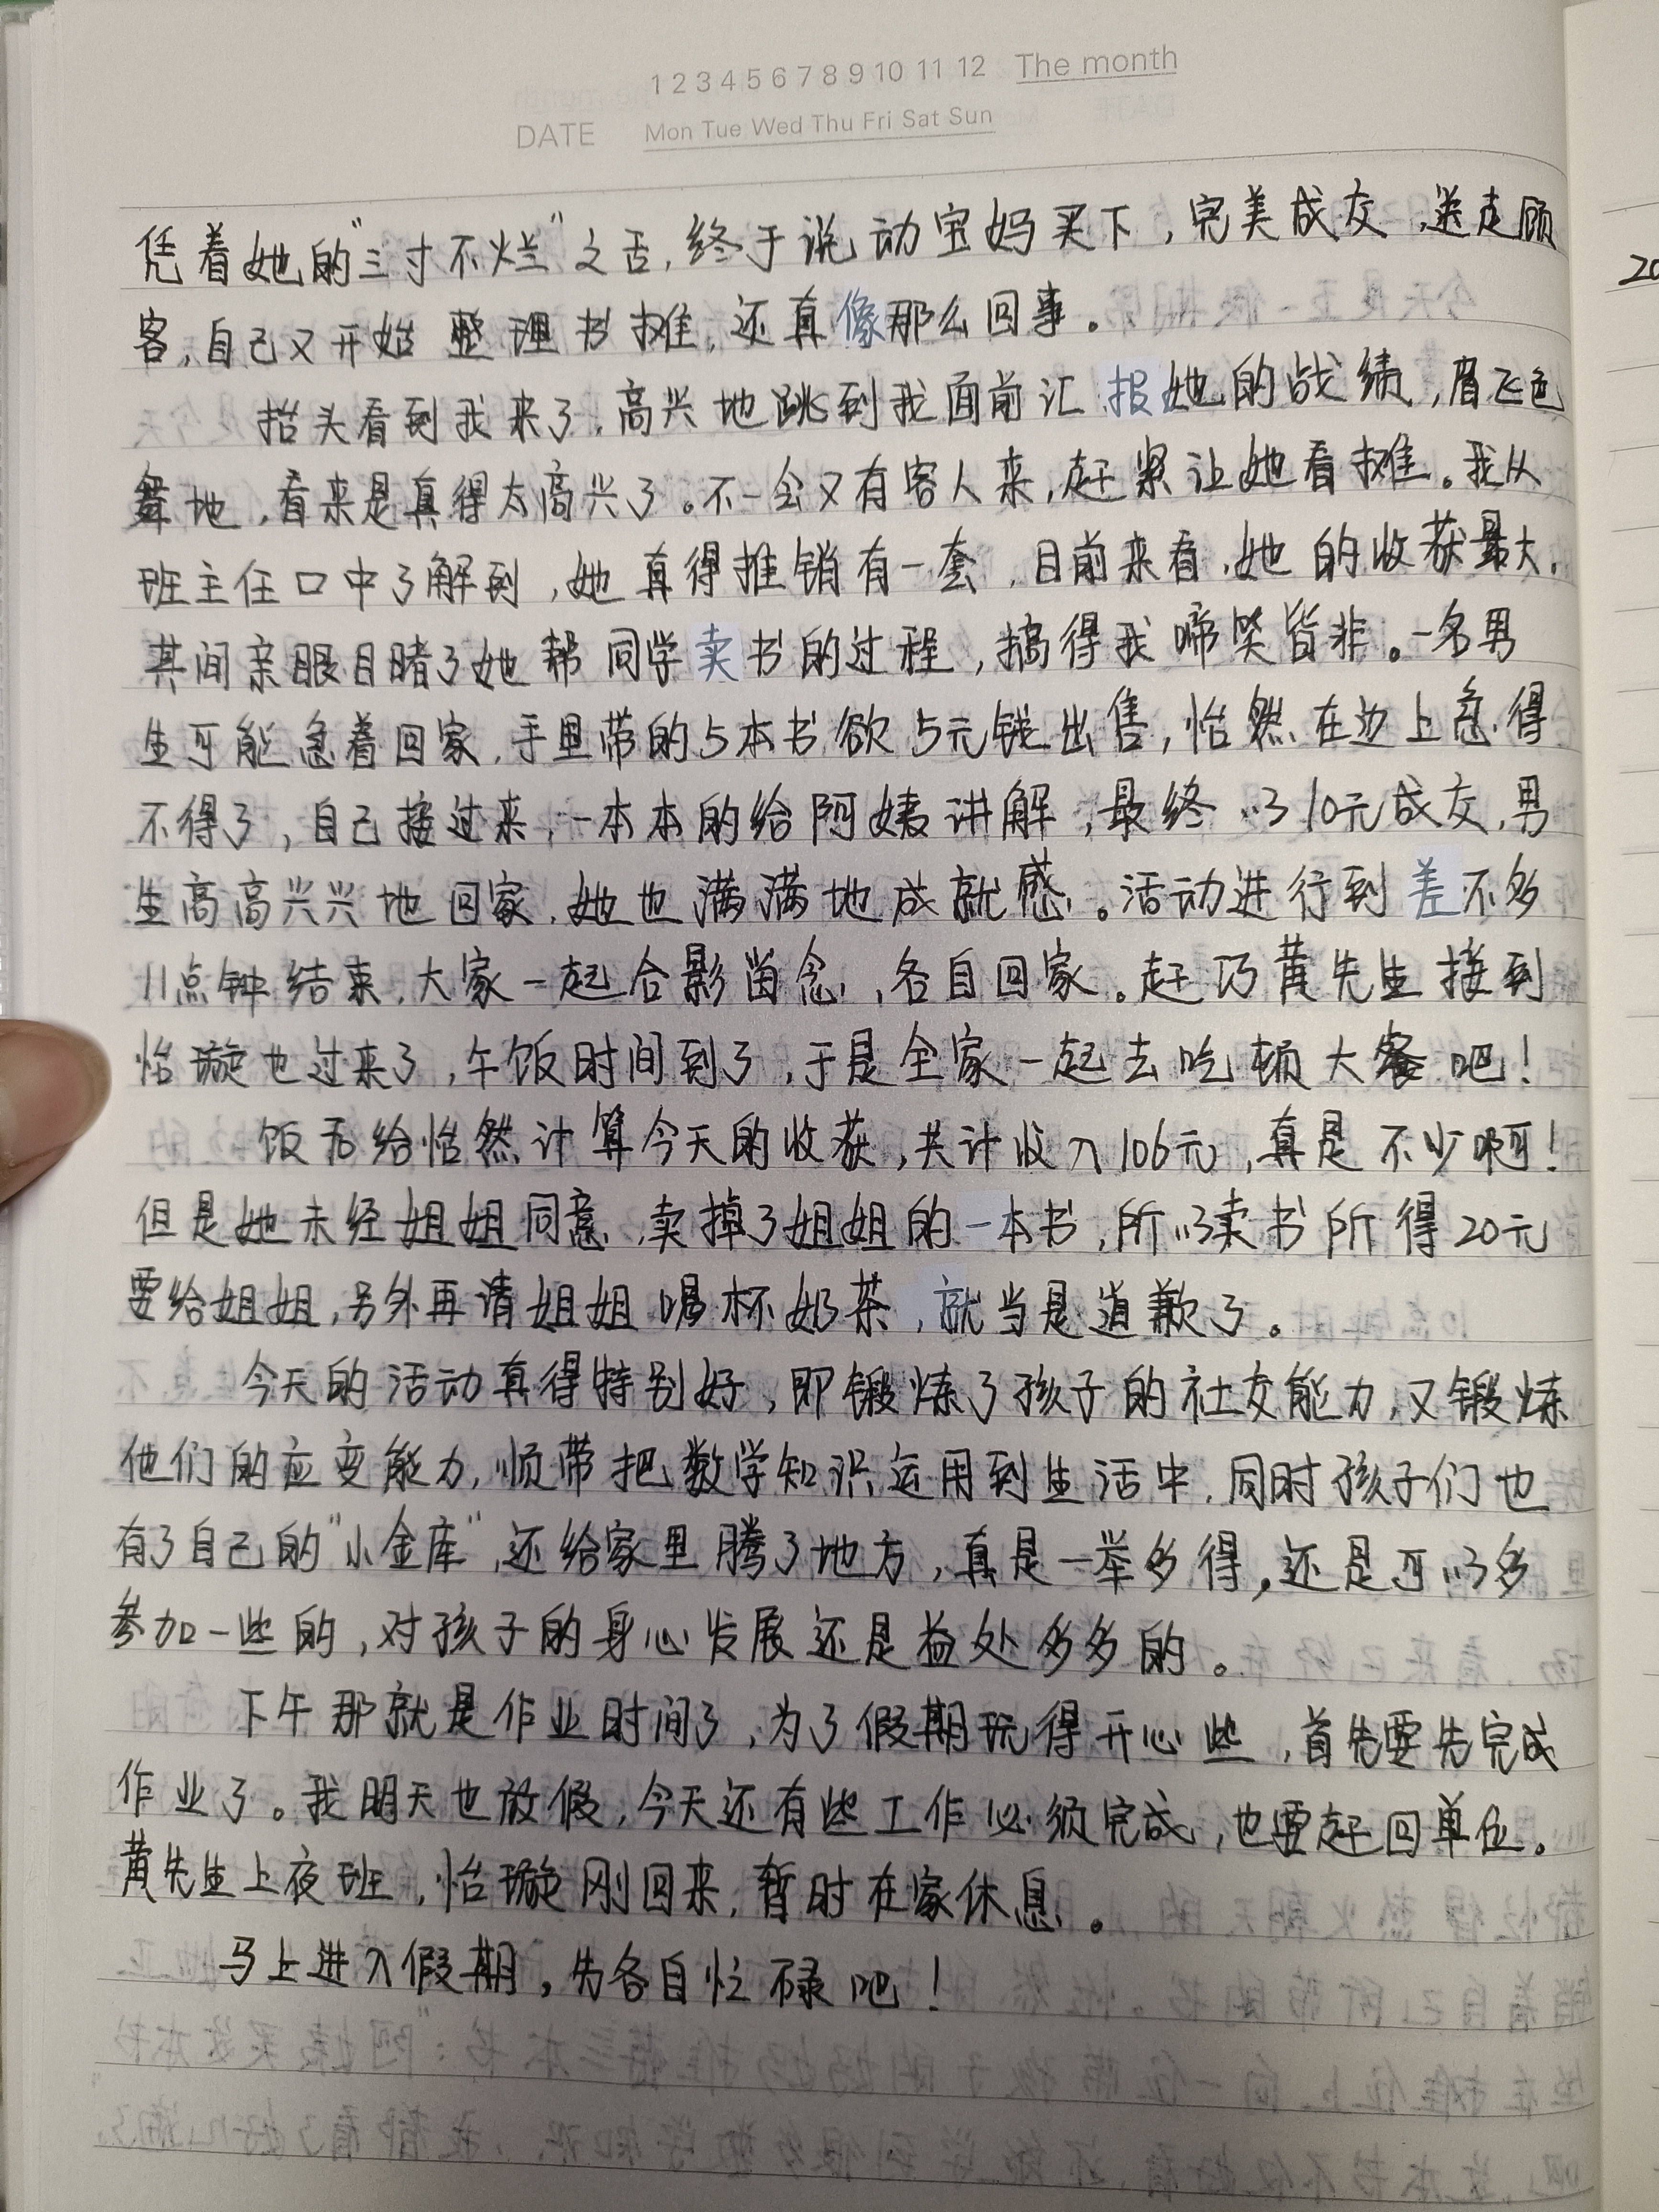 1 2 3 4 5 6 7 8 9 10 11 12 The month
DATE Mon Tue Wed Thu Fri Sat Sun
凭着她的"三寸不烂"之舌,终于说动宝妈买下,完美成交,送走顾
20
客,自己又开始整理书摊,还真像那么回事。
抬头看到我来了,高兴地跳到我面前汇报她的战绩,眉飞色
舞地,看来是真得太高兴了。不一会又有客人来,赶紧让她看摊。我从
班主任口中了解到,她真得推销有一套,目前来看,她的收获最大,
其间亲眼目睹了她帮同学卖书的过程,搞得我啼笑皆非。一名男
生可能急着回家,手里带的5本书欲5元钱出售,怡然在边上急得
不得了,自己接过来,一本本的给阿姨讲解,最终以10元成交,男
生高高兴兴地回家,她也满满地成就感。活动进行到差不多
11点钟结束,大家一起合影留念,各自回家。赶巧黄先生接到
怡璇也过来了,午饭时间到了,于是全家一起去吃顿大餐吧!
饭后给怡然计算今天的收获,共计收入106元,真是不少啊!
但是她未经姐姐同意,卖掉了姐姐的一本书,所以卖书所得20元
要给姐姐,另外再请姐姐喝杯奶茶,就当是道歉了。
今天的活动真得特别好,即锻炼了孩子的社交能力,又锻炼
他们的应变能力,顺带把数学知识运用到生活中,同时孩子们也
有了自己的"小金库",还给家里腾了地方,真是一举多得,还是可以多
参加一些的,对孩子的身心发展还是益处多多的。
下午那就是作业时间了,为了假期玩得开心些,首先要先完成
作业了。我明天也放假,今天还有些工作必须完成,也要赶回单位。
黄先生上夜班,怡璇刚回来,暂时在家休息。
马上进入假期,先各自忙碌吧!